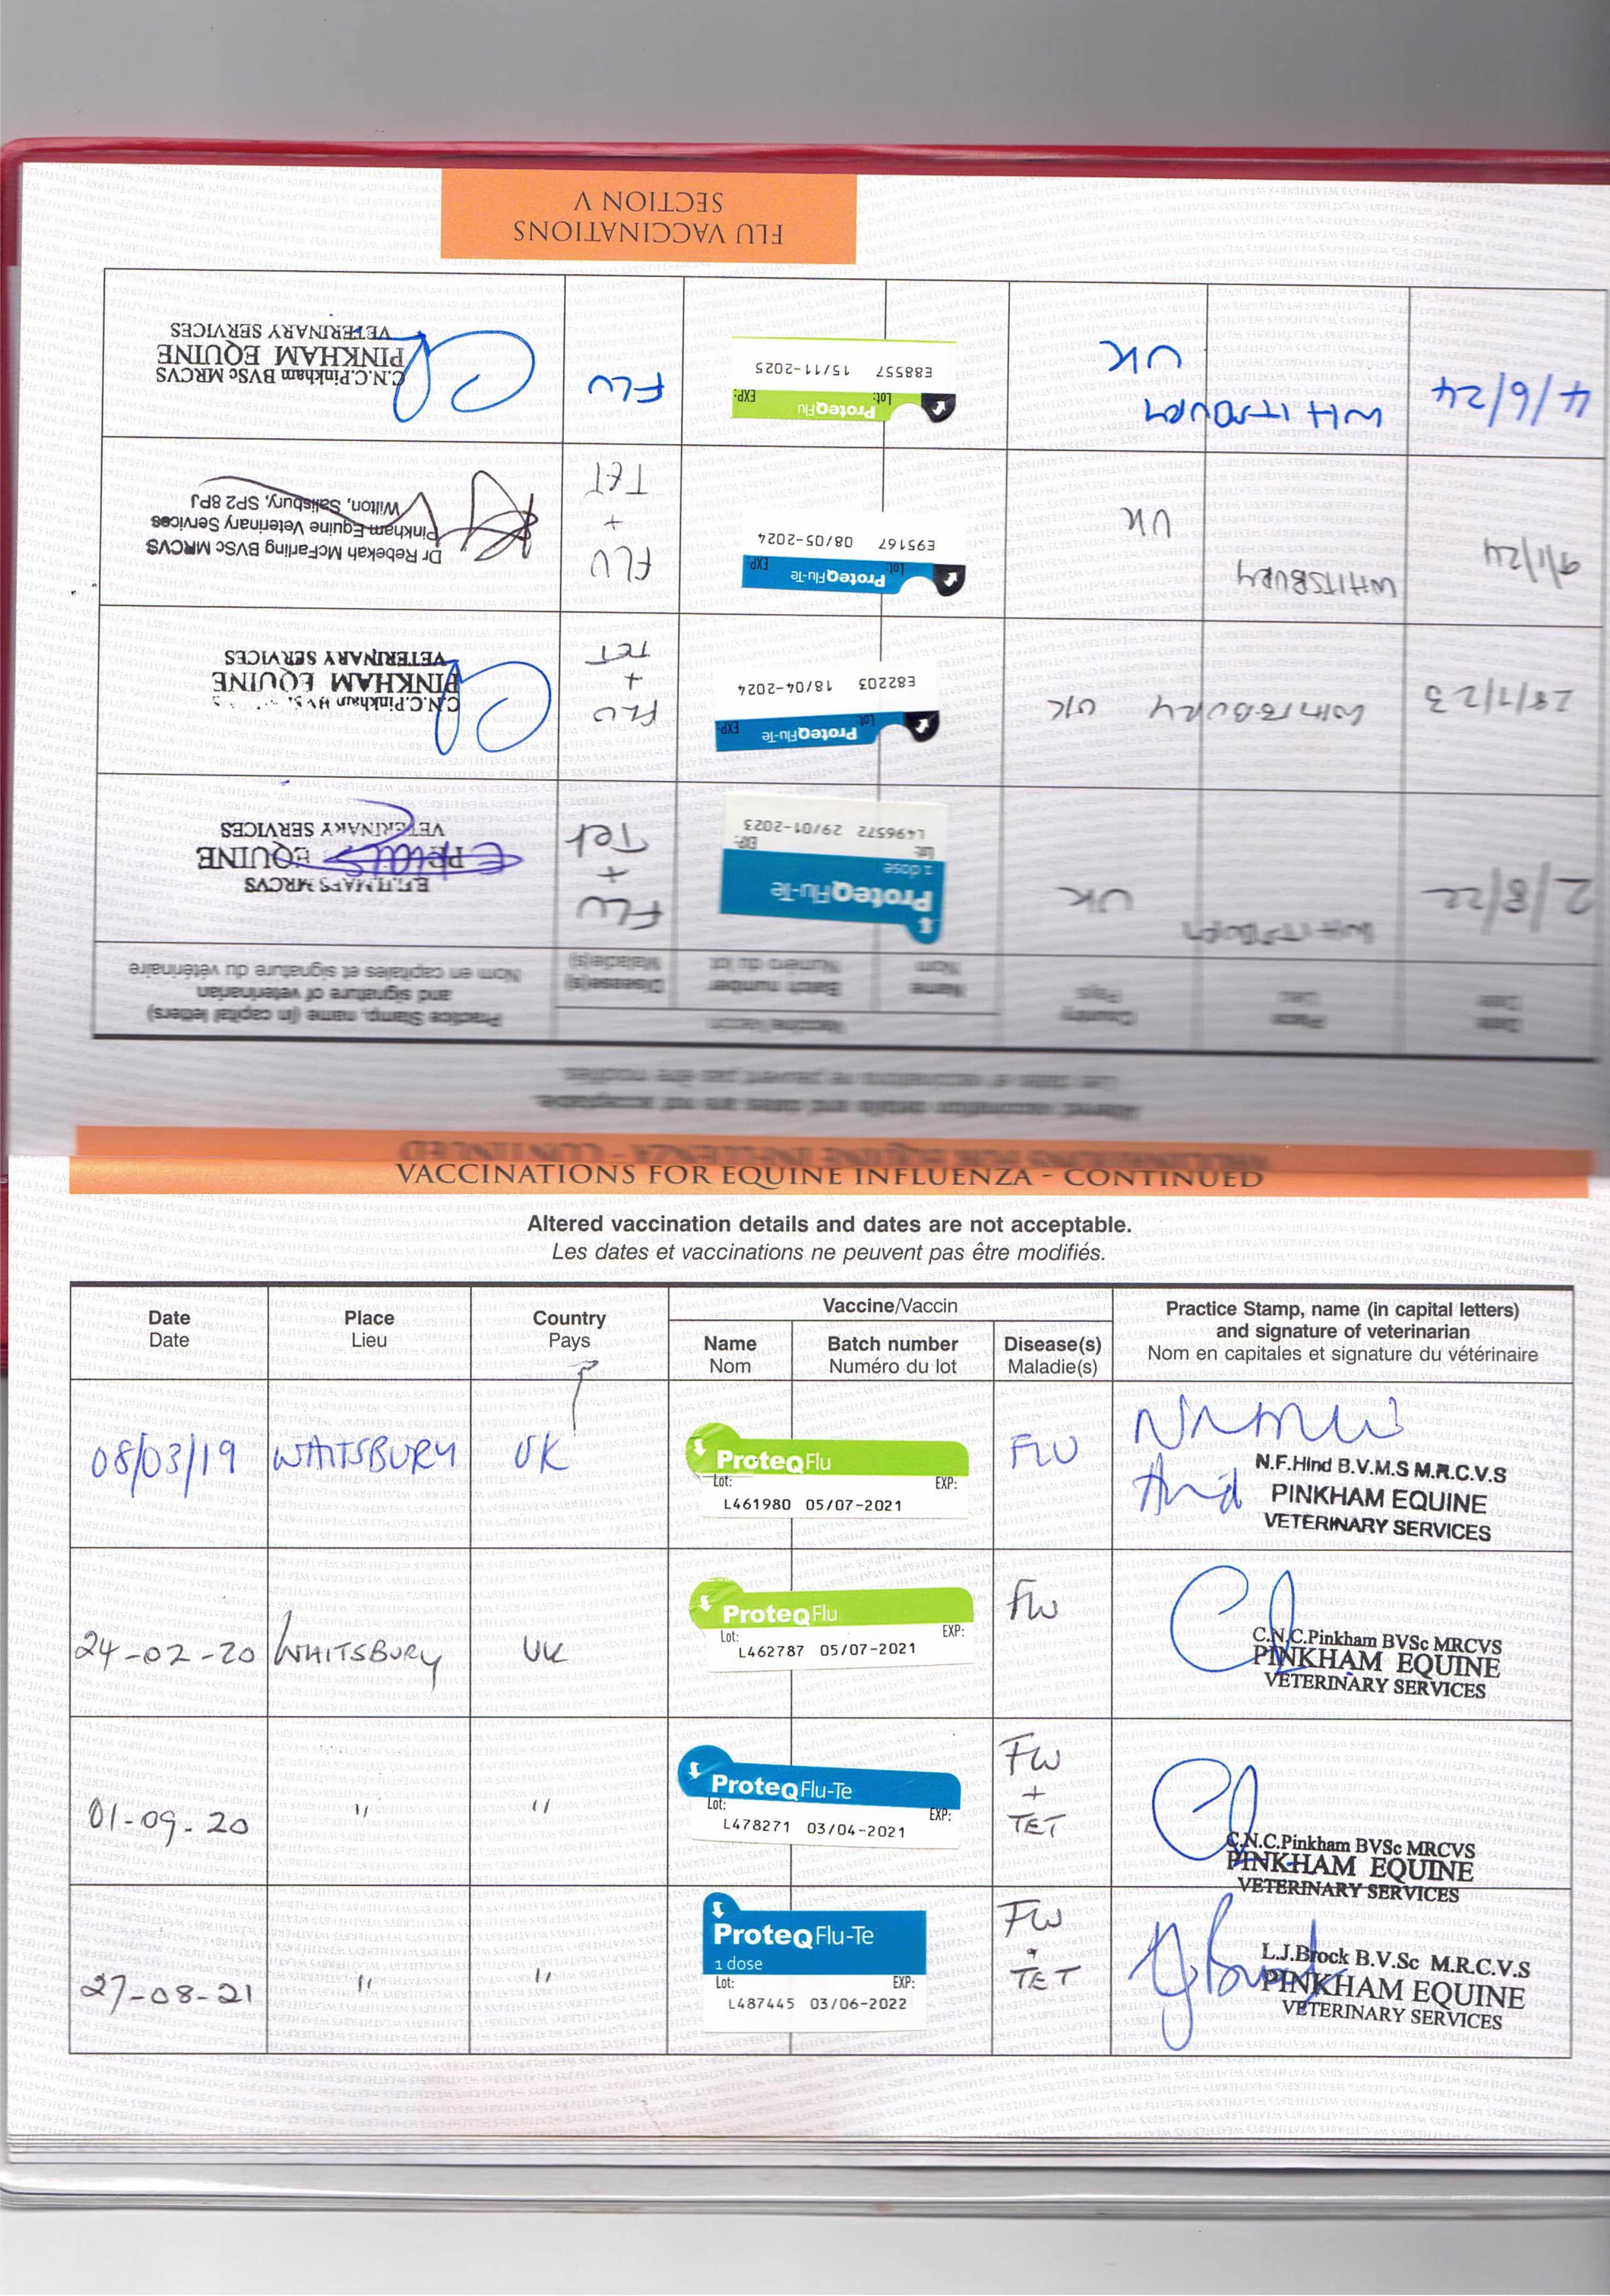 VACCINATIONS FOR EQUINE INFLUENZA - CONTINUED
Altered vaccination details and dates are not acceptable.
Les dates et vaccinations ne peuvent pas être modifiés.
Date Place Country Vaccine/Vaccin Practice Stamp, name (in capital letters)
Date Lieu Pays Name Batch number Disease(s) and signature of veterinarian
Nom Numéro du lot Maladie(s) Nom en capitales et signature du vétérinaire
08/03/19 WHITSBURY UK ProteqFlu FLU
Lot: EXP: N.F.Hind B.V.M.S M.R.C.V.S
L461980 05/07-2021 PINKHAM EQUINE
VETERINARY SERVICES
24-02-20 WHITSBURY UK ProteqFlu Flu
Lot: EXP: C.N.C.Pinkham BVSc MRCVS
L462787 05/07-2021 PINKHAM EQUINE
VETERINARY SERVICES
01-09-20 " " ProteqFlu-Te Flu
+
TET
Lot: EXP: C.N.C.Pinkham BVSc MRCVS
L478271 03/04-2021 PINKHAM EQUINE
VETERINARY SERVICES
27-08-21 " " ProteqFlu-Te Flu
+
TET
1 dose L.J.Brock B.V.Sc M.R.C.V.S
Lot: EXP: PINKHAM EQUINE
L487445 03/06-2022 VETERINARY SERVICES
VACCINATIONS FOR EQUINE INFLUENZA - CONTINUED
Altered vaccination details and dates are not acceptable.
Les dates et vaccinations ne peuvent pas être modifiés.
Date Place Country Vaccine/Vaccin Practice Stamp, name (in capital letters)
Date Lieu Pays Name Batch number Disease(s) and signature of veterinarian
Nom Numéro du lot Maladie(s) Nom en capitales et signature du vétérinaire
2/8/22 WHITSBURY UK ProteqFlu-Te FLU
+
Tet
1 dose MRCVS
Lot: EXP: EQUINE
L496572 29/01-2023 VETERINARY SERVICES
28/7/23 WHITSBURY UK ProteqFlu-Te FLU
+
TET
Lot: EXP: C.N.C.Pinkham
E82203 18/04-2024 PINKHAM EQUINE
VETERINARY SERVICES
9/1/24 WHITSBURY UK ProteqFlu-Te FLU
+
TET
Lot: EXP: Dr Rebekah McFarling BVSc MRCVS
E95167 08/05-2024 Pinkham Equine Veterinary Services
Wilton, Salisbury, SP2 8PJ
4/6/24 WHITSBURY UK ProteqFlu FLU
Lot: EXP: C.N.C.Pinkham BVSc MRCVS
E88557 15/11-2025 PINKHAM EQUINE
VETERINARY SERVICES
FLU VACCINATIONS
SECTION V